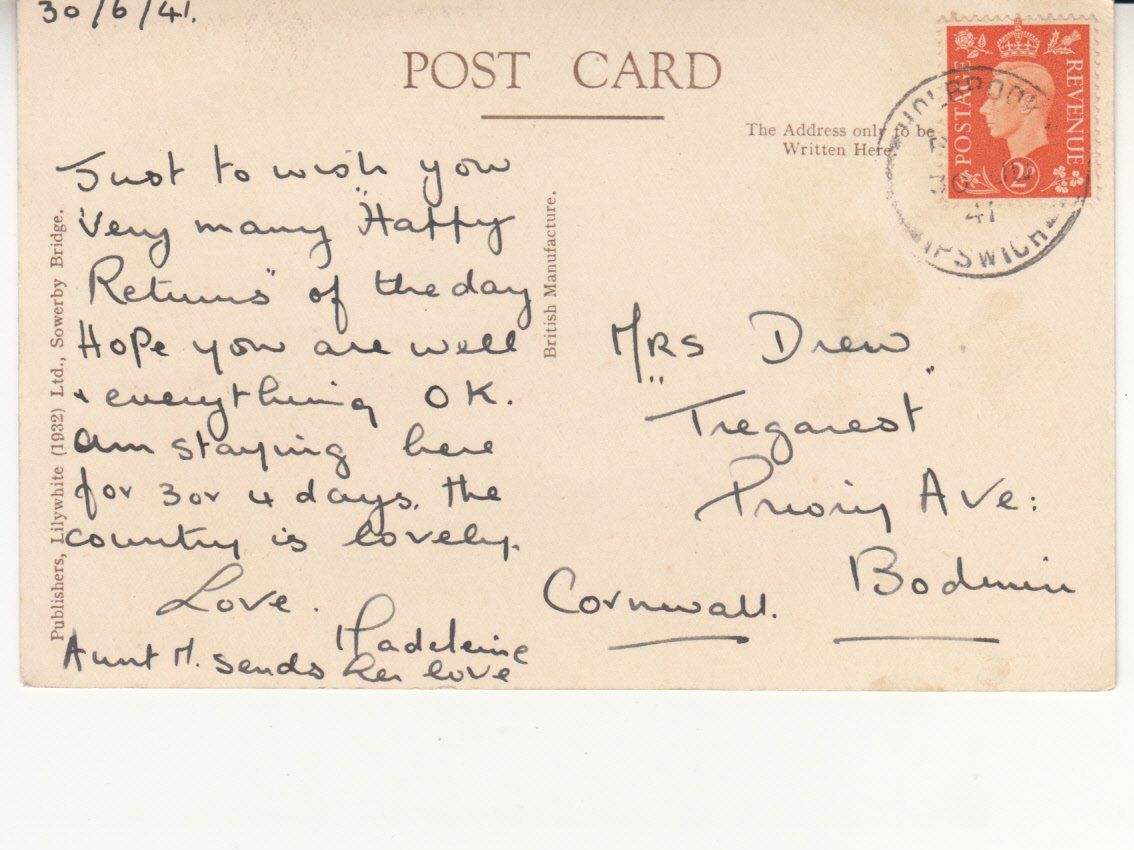 30/6/41.
POST CARD
The Address only to be
Written Here.
POSTAGE
REVENUE
2D
HOLBROOK
30 JU
41
IPSWICH
Just to wish you
Very many "Happy
Returns" of the day
Hope you are well
+ everything OK.
Am staying here
for 3 or 4 days. the
country is lovely.
Love.
Madeleine
Aunt M. sends her love
Publishers, Lilywhite (1932) Ltd., Sowerby Bridge.
British Manufacture.
Mrs Drew
"Tregarest"
Priory Ave:
Bodmin
Cornwall.